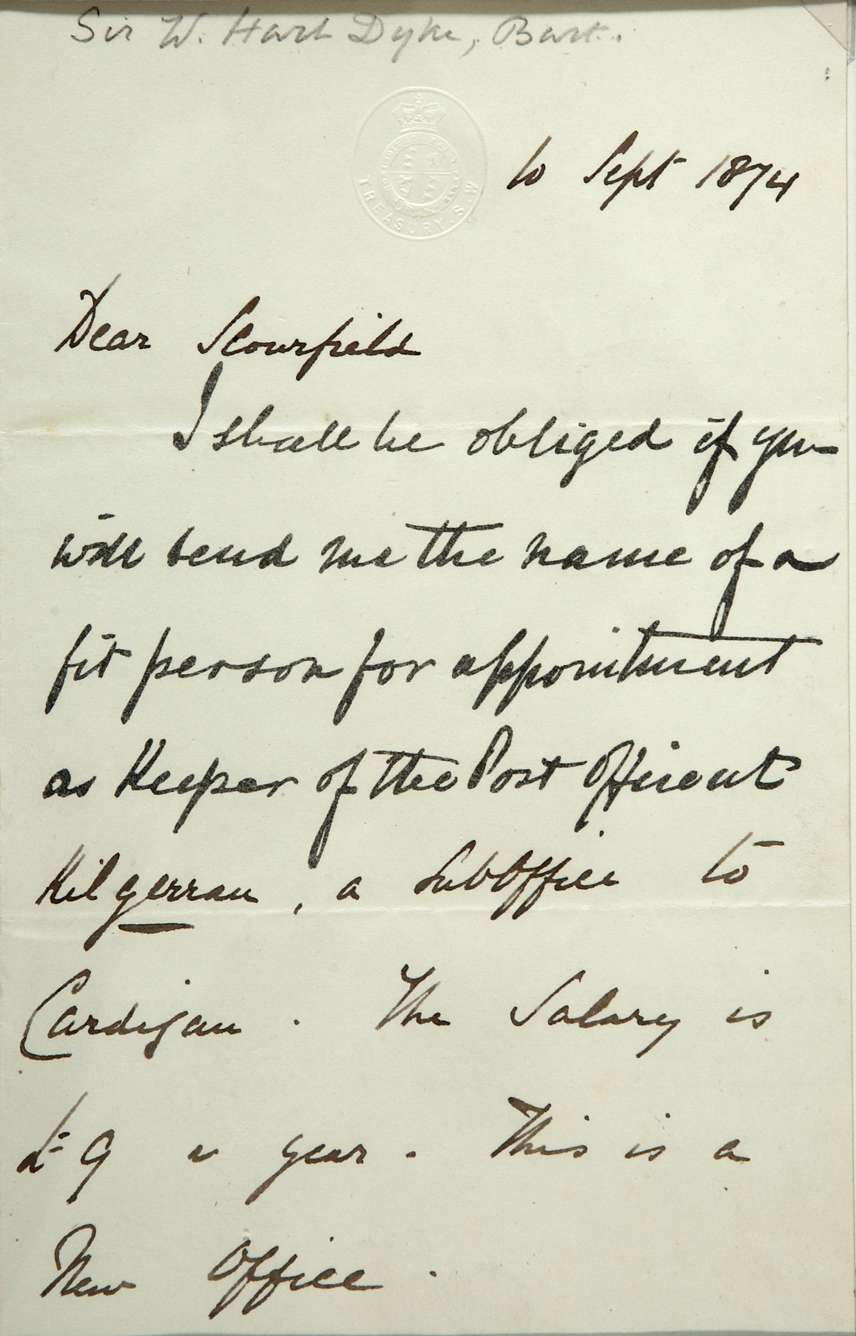 Sir W. Hart Dyke, Bart.
TREASURY S.W
10 Sept 1874
Dear Scourfield
I shall be obliged if you
will send me the name of a
fit person for appointment
as Keeper of the Post Office at
Kilgerran, a SubOffice to
Cardigan. The Salary is
£9 a year. This is a
New Office.